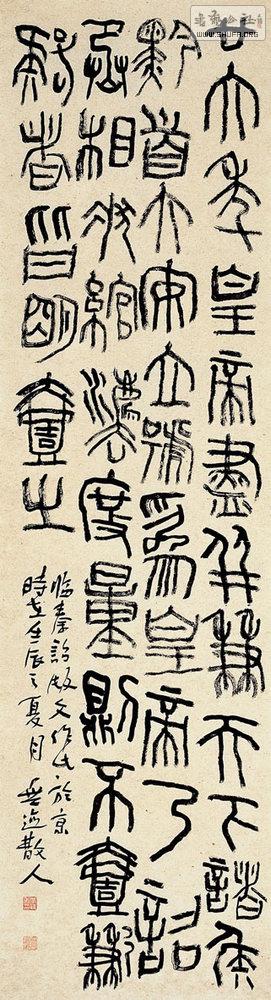 廿六年皇帝盡并兼天下諸侯
黔首大安立號為皇帝乃詔
丞相狀綰灋度量則不壹歉
疑者皆明壹之
臨秦詔版文作於京
時在壬辰之夏月 散人
WWW.SHUFA.ORG